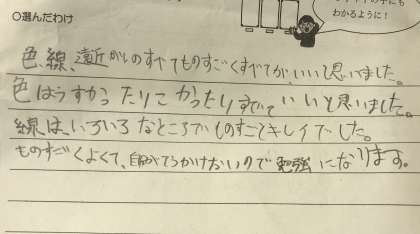 ○選んだわけ
わかるように！
色、線、遠近がのすべてものすごくすべてが、いい思いました。
色はうすかったりこかったりすべていいと思いました。
線は、いろいろなところでものすごくキレイでした。
ものすごくよくて、自分がてらかけないので勉強になります。